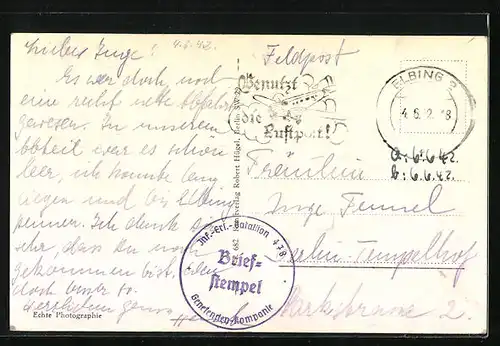 Lieber Inge! 4.6.42.
Es war doch noch
eine recht nette Abfahrt
gewesen. In unserem
Abteil war es schön
leer, ich konnte lang
liegen und bis Elbing
pennen. Ich danke Dir
sehr, dass Du noch
gekommen bist, aber
doch besser so.
Herzlichen Gruss
Echte Photographie
Feldpost
Benutzt
die
Luftpost!
ELBING 2
4.6.42.18
a: 6.6.42.
b: 6.6.42.
Fräulein
Inge Fennel
Berlin-Tempelhof
Parkstrasse 2.
Inf.-Ers.-Bataillon 478
Brief-
stempel
Genesenden-Kompanie
682 Robert Hügel, Berlin SW 29